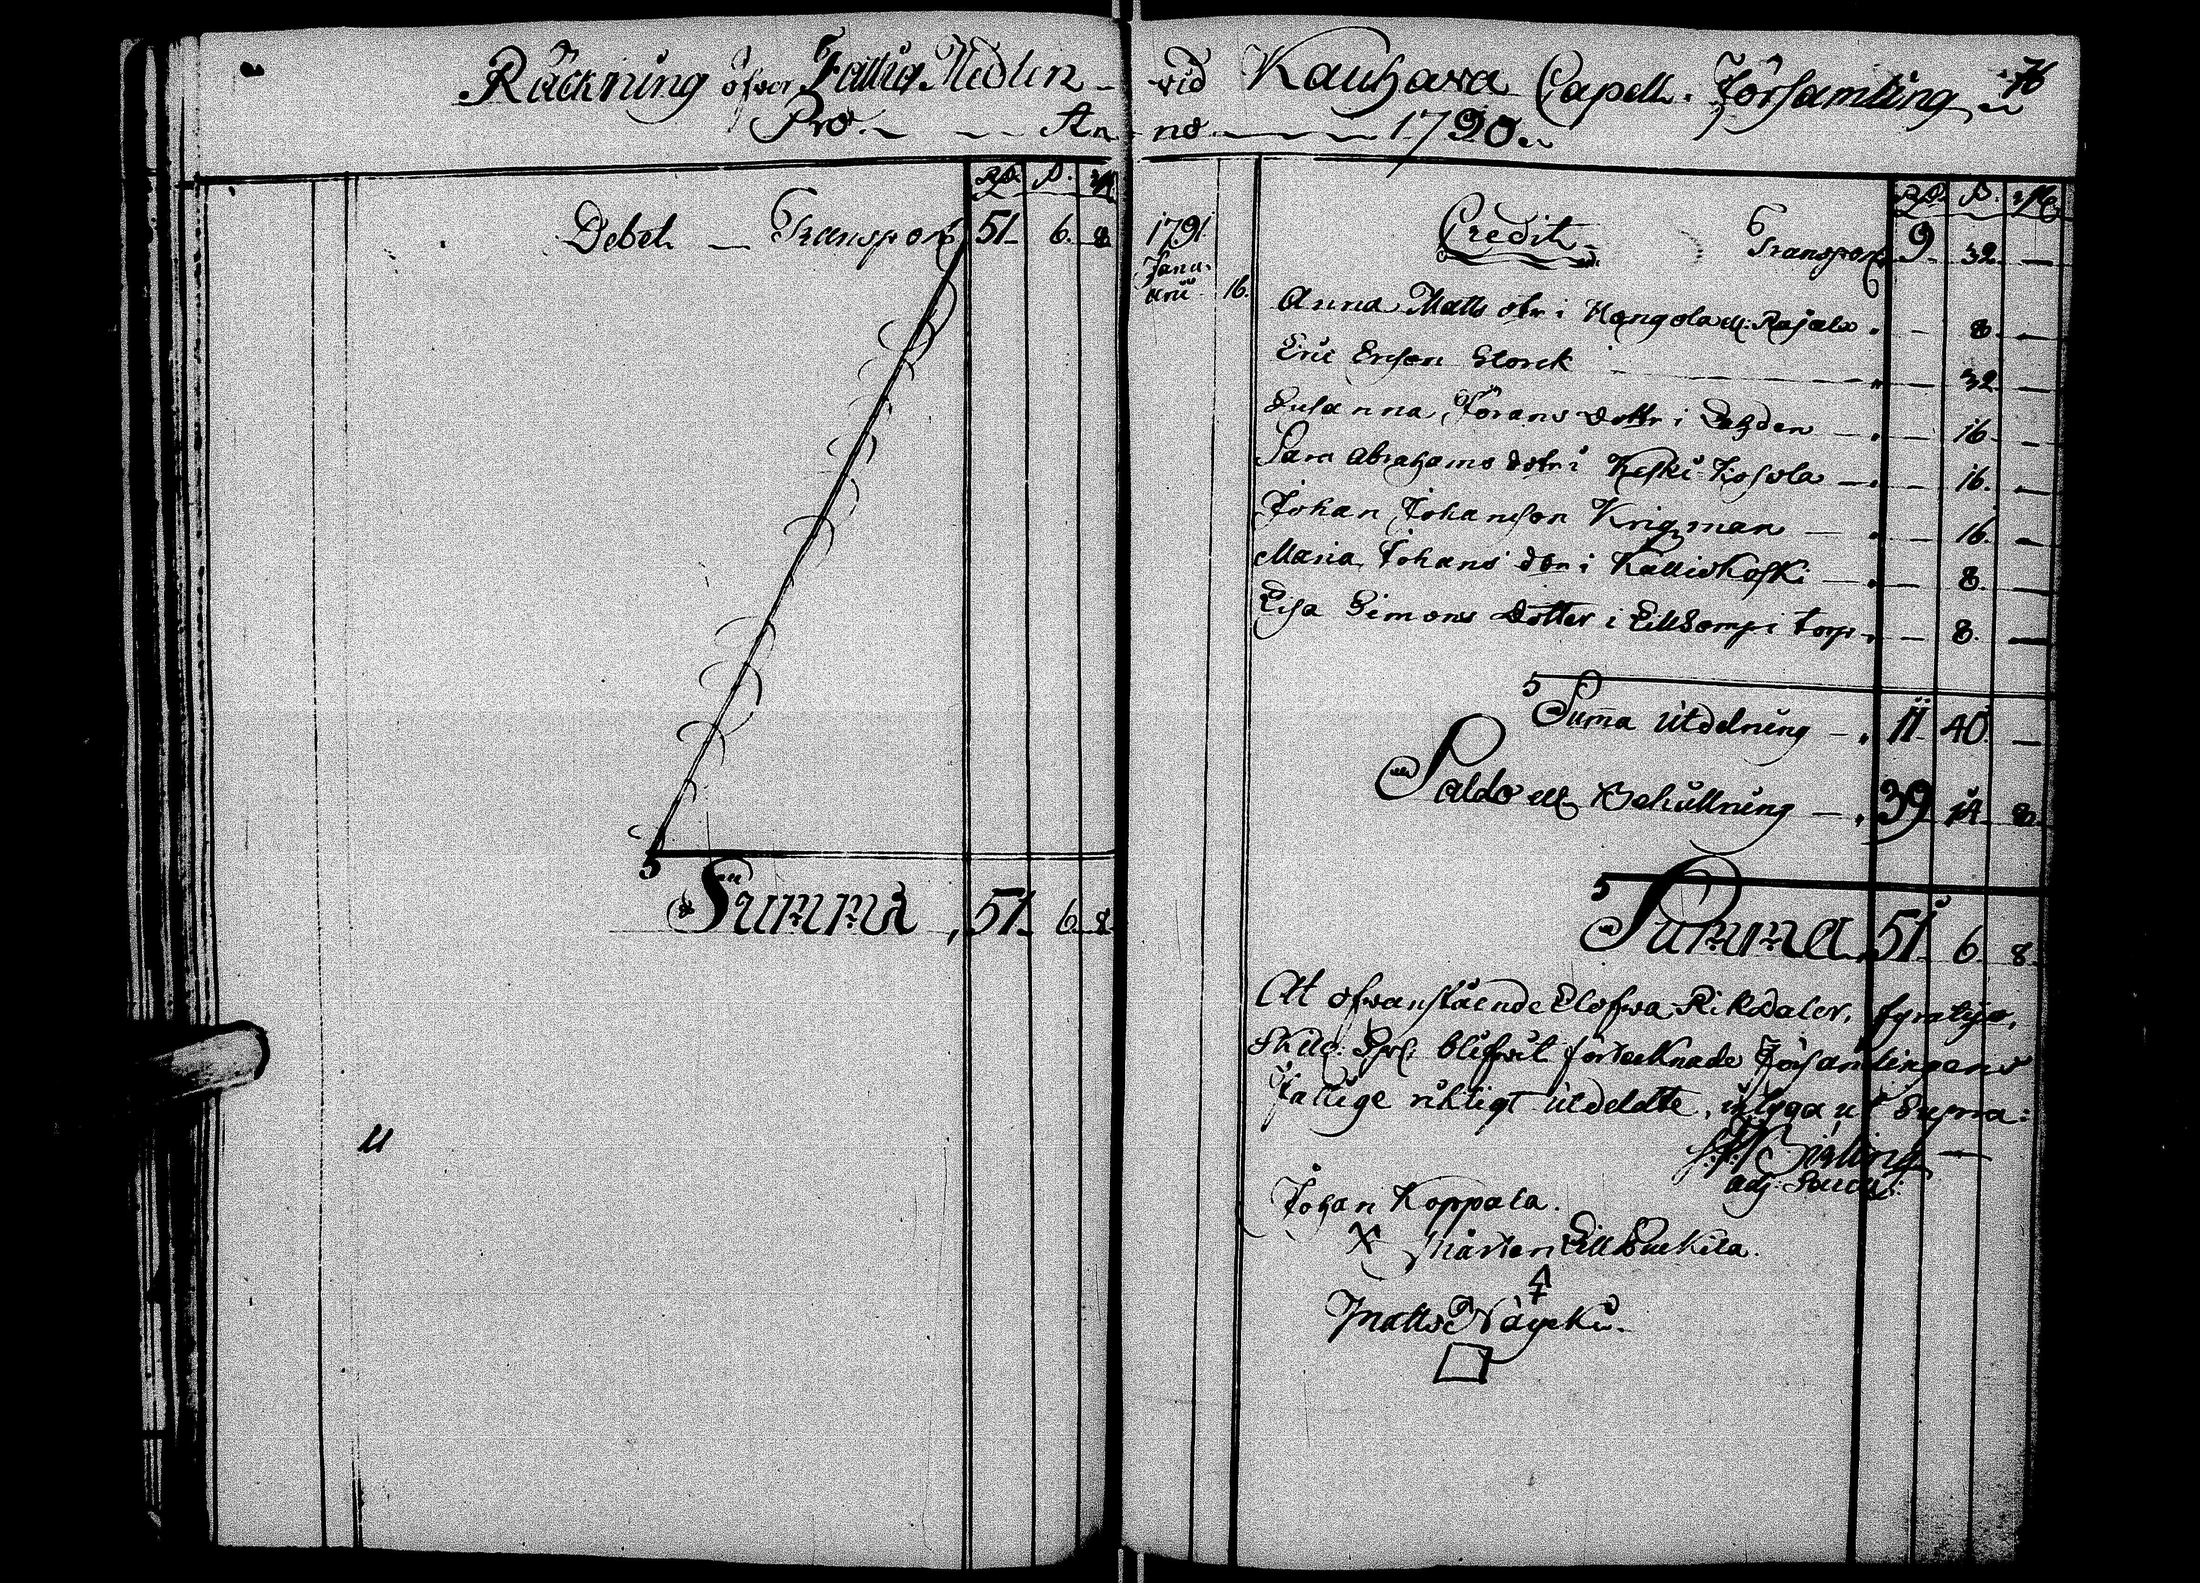 Räckning öfver Fattig Medlen - vid Kauhava Capell. Församling 76
Pro. Anno 1790.
Rd. ß. rst.
Debet. — Transport 51. 6. 8
Summa 51. 6. 8.
1791
Janu-
arii 16.
Rd. ß. rst.
Credit. Transport 9. 32. —
Anna Matts dotr i Kangola ell. Rajala — 8. —
Eric Ersson Storck — 32 —
Susanna Jörans Dottr i — 16. —
Sara Abrahams dotr i Keski-Kosola — 16. —
Johan Johansson Krigzman — 16. —
Maria Johans dotr i Kalliokoski — 8. —
Lisa Simons Dotter i torp — 8. —
Summa utdelning — 11. 40. —
Saldo ell. Behållning — 39 14. 8.
Summa 51. 6. 8.
At ofvanstående Elofva Riksdaler, fyratijo,
Skill. Sp. blifvit förtecknade Församlingens
fattige riktigt utdeldte, intyga ut Supra:
adj: Sacri
Johan Koppala.
X Mårten
Matts Näyeki.